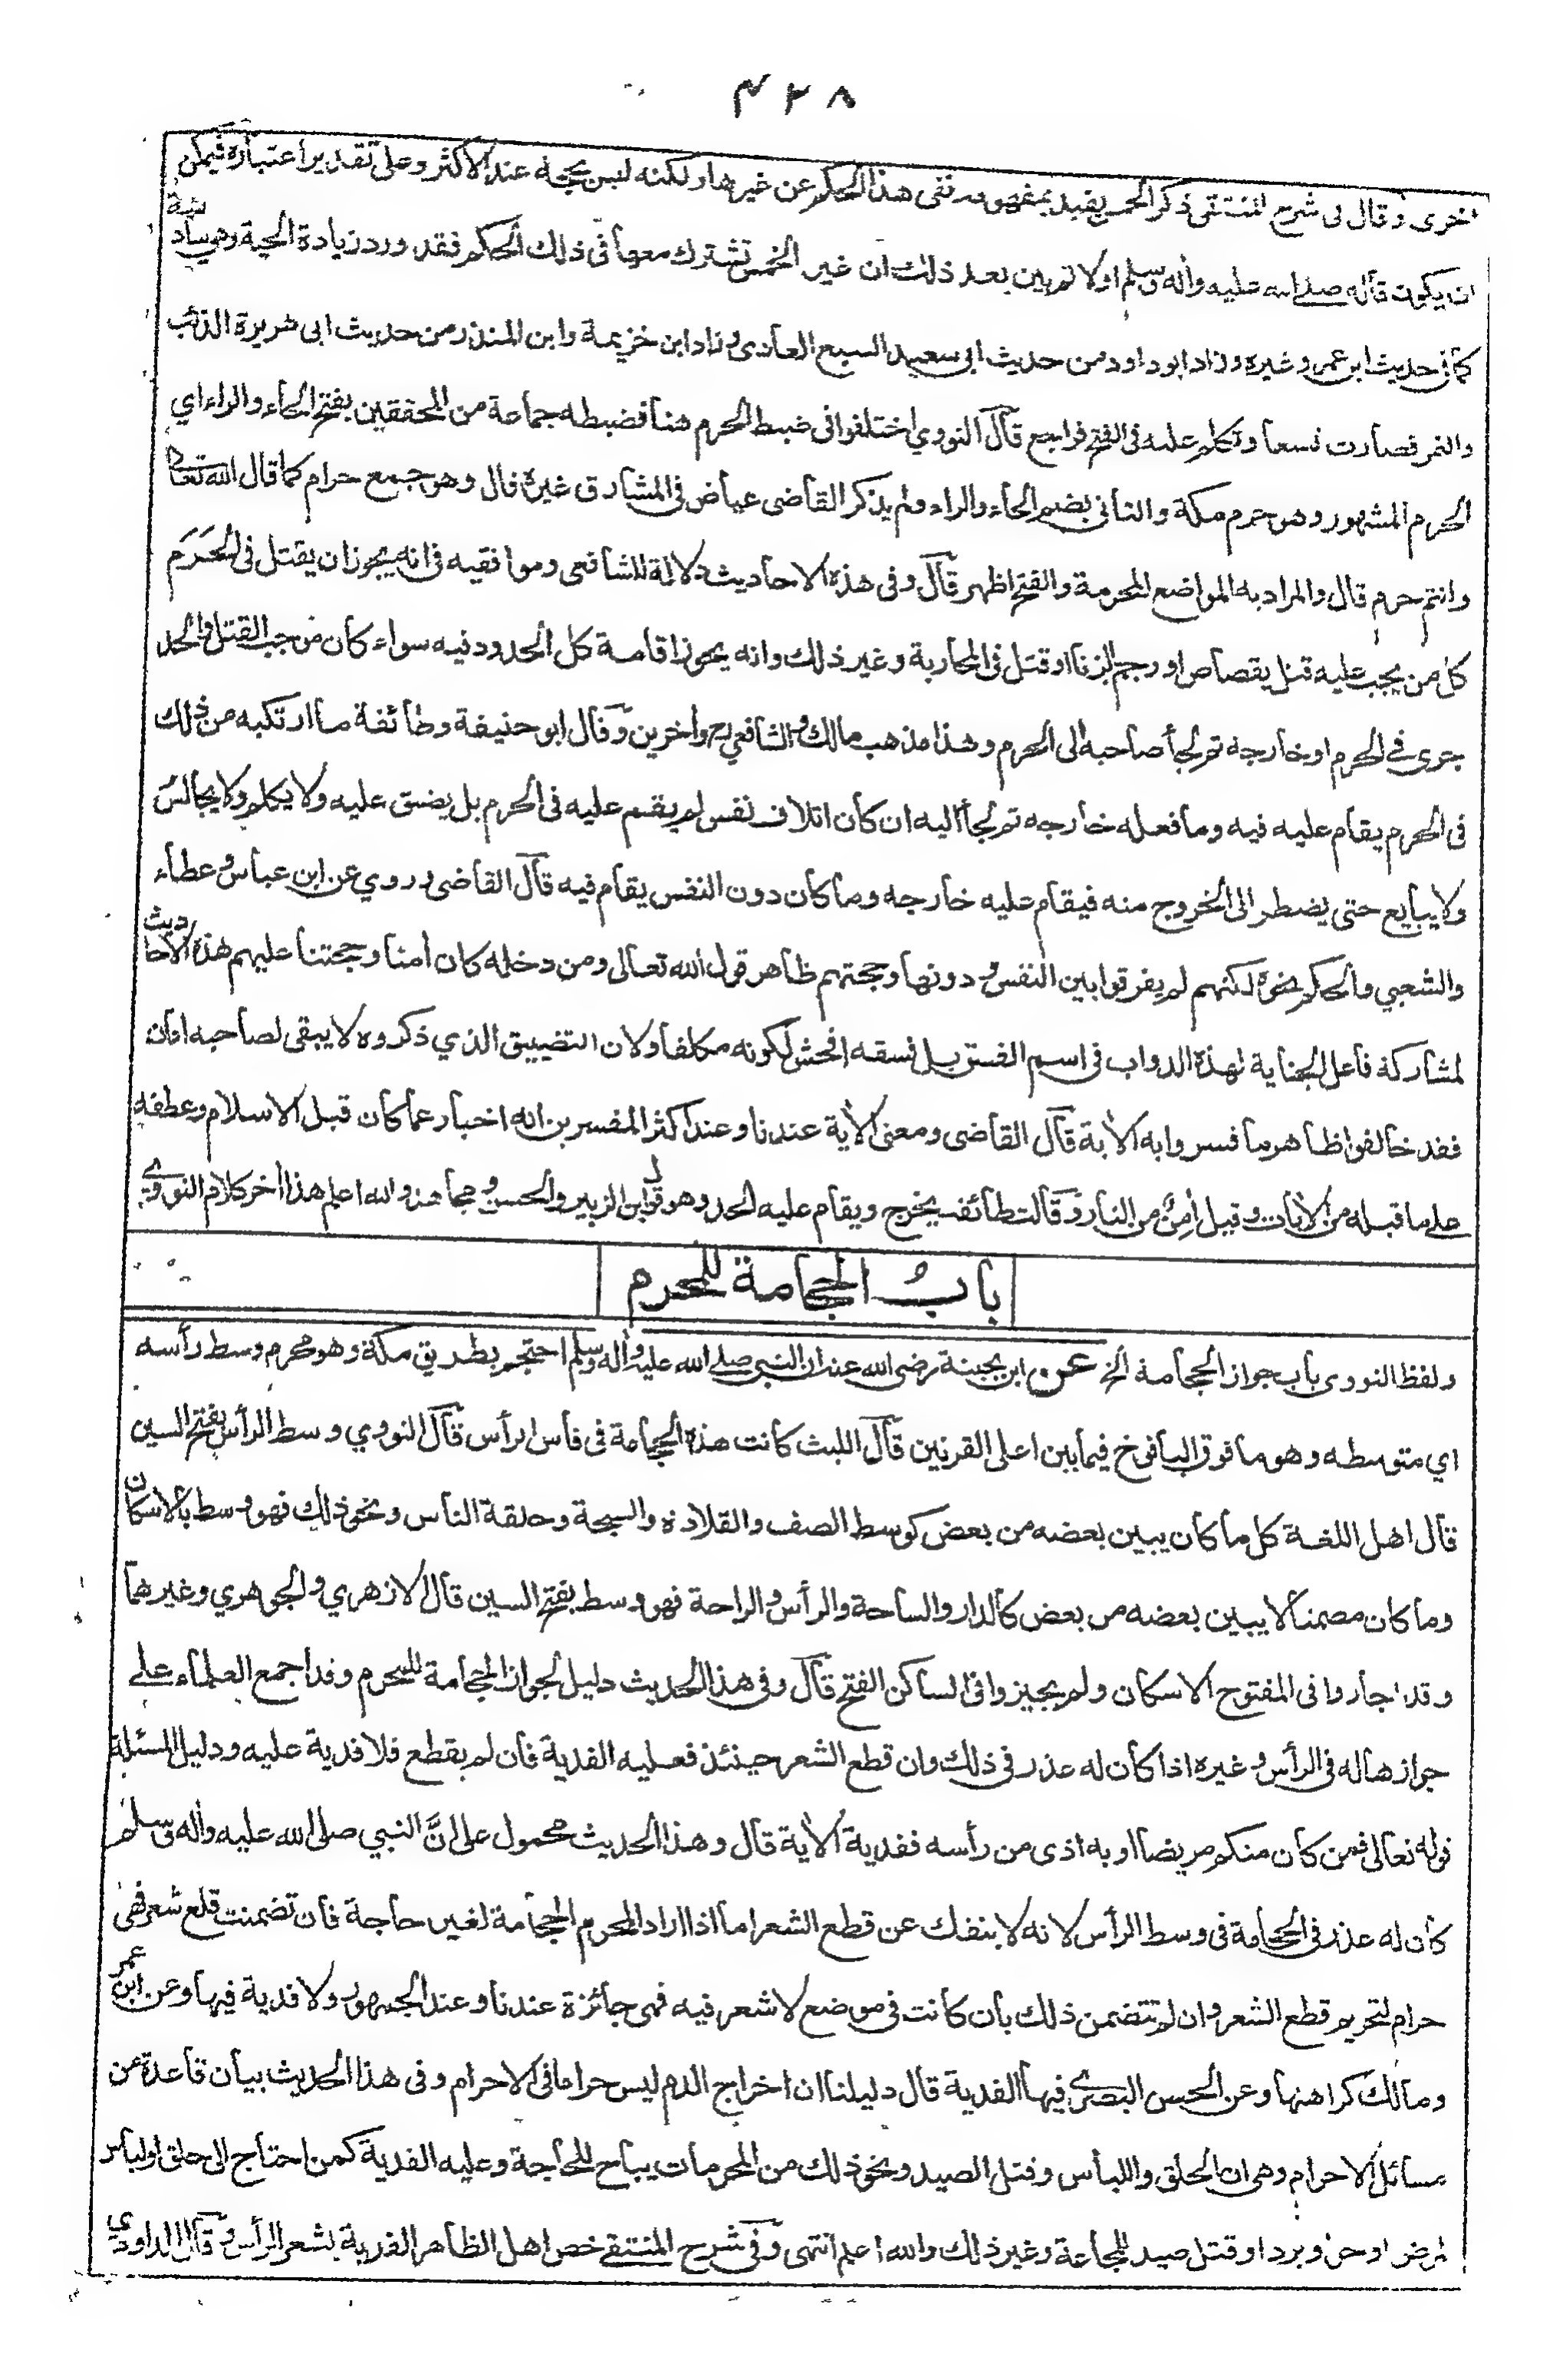 ۴۲۸
اخرى وقال فى شرح المنتقى ذكر الخمس يفيد بمفهومه نفى هذا الحكم عن غيرها ولكنه ليس بحجة عند الاكثر وعلى تقدير اعتباره فيمكن
ان يكون قاله صلى الله عليه وأله وسلم اولا ثم بين بعد ذلك ان غير الخمس تشترك معها فى ذلك الحكم فقد ورد زيادة الحية وهى سادسة
كما فى حديث ابن عمر وغيره وزاد ابو داود من حديث ابى سعيد السبع العادى وزاد ابن خزيمة وابن المنذر من حديث ابى هريرة الذئب
والنمر فصارت تسعا وتكلم عليه فى الفتح فراجع قال النووي اختلفوا فى ضبط الحرم هنا فضبطه جماعة من المحققين بفتح الحاء والراء اي
الحرم المشهور وهو حرم مكة والثانى بضم الحاء والراء ولم يذكر القاضى عياض فى المشارق غيره قال وهو جمع حرام كما قال الله تعالى
وانتم حرم قال والمراد به المواضع المحرمة والفتح اظهر قال وفى هذه الاحاديث دلالة للشافعى وموافقيه فى انه يجوز ان يقتل فى الحَرَم
كل من يجب عليه قتل بقصاص او رجم بالزنا او قتل فى المحاربة وغير ذلك وانه يجوز اقامة كل الحدود فيه سواء كان موجب القتل والحد
جرى فى الحرم او خارجه ثم لجأ صاحبه الى الحرم وهذا مذهب مالك والشافعي رح وأخرين وقال ابو حنيفة وطائفة ما ارتكبه من ذلك
فى الحرم يقام عليه فيه وما فعله خارجه ثم لجأ اليه ان كان اتلاف نفس لم يقم عليه فى الحرم بل يضيق عليه ولا يكلم ولا يجالس
ولا يبايع حتى يضطر الى الخروج منه فيقام عليه خارجه وما كان دون النفس يقام فيه قال القاضى وروي عن ابن عباس وعطاء
والشعبي والحكم نحوه لكنهم لم يفرقوا بين النفس ودونها وحجتهم ظاهر قول الله تعالى ومن دخله كان أمنا وحجتنا عليهم هذه الاحاديث
لمشاركة فاعل الجناية لهذه الدواب فى اسم الفسق بل فسقه افحش لكونه مكلفا ولان التضييق الذي ذكروه لا يبقى لصاحبه امان
فقد خالفوا ظاهر ما فسروا به الأية قال القاضى ومعنى الأية عندنا وعند اكثر المفسرين انه اخبار عما كان قبل الاسلام وعطفه
على ما قبله من الأيات وقيل أمِنٌ من النار وقالت طائفة يخرج ويقام عليه الحد وهو قول ابن الزبير والحسن ومجاهد والله اعلم هذا أخر كلام النووي
بابُ الحجامة للمحرم
ولفظ النووى باب جواز الحجامة الخ عن ابن بحينة رضى الله عنه ان النبى صلى الله عليه وأله وسلم احتجم بطريق مكة وهو محرم وسط رأسه
اي متوسطه وهو ما فوق اليافوخ فيما بين اعلى القرنين قال الليث كانت هذه الحجامة فى فاس الرأس قال النووي وسط الرأس بفتح السين
قال اهل اللغة كل ما كان يبين بعضه من بعض كوسط الصف والقلادة والسبحة وحلقة الناس ونحو ذلك فهو وسط بالاسكان
وما كان مصمتا لا يبين بعضه من بعض كالدار والساحة والرأس والراحة فهو وسط بفتح السين قال الازهري والجوهري وغيرهما
وقد اجازوا فى المفتوح الاسكان ولم يجيزوا فى الساكن الفتح قال وفى هذا الحديث دليل لجواز الحجامة للمحرم وقد اجمع العلماء على
جوازها له فى الرأس وغيره اذا كان له عذر فى ذلك وان قطع الشعر حينئذ فعليه الفدية فان لم يقطع فلا فدية عليه ودليل المسئلة
قوله تعالى فمن كان منكم مريضا او به اذى من رأسه ففدية الأية قال وهذا الحديث محمول على انَّ النبي صلى الله عليه وأله وسلم
كان له عذر فى الحجامة فى وسط الرأس لانه لا ينفك عن قطع الشعر اما اذا اراد المحرم الحجامة لغير حاجة فان تضمنت قلع شعر فهى
حرام لتحريم قطع الشعر وان لم تتضمن ذلك بان كانت فى موضع لا شعر فيه فهى جائزة عندنا وعند الجمهور ولا فدية فيها وعن ابن عمر
ومالك كراهتها وعن الحسن البصرى فيها الفدية قال دليلنا ان اخراج الدم ليس حراما فى الاحرام وفى هذا الحديث بيان قاعدة من
مسائل الاحرام وهى ان الحلق واللباس وقتل الصيد ونحو ذلك من المحرمات يباح للحاجة وعليه الفدية كمن احتاج الى حلق او لباس
لمرض او حر او برد او قتل صيد للمجاعة وغير ذلك والله اعلم انتهى وفى شرح المنتقى خص اهل الظاهر الفدية بشعر الرأس وقال الداودي